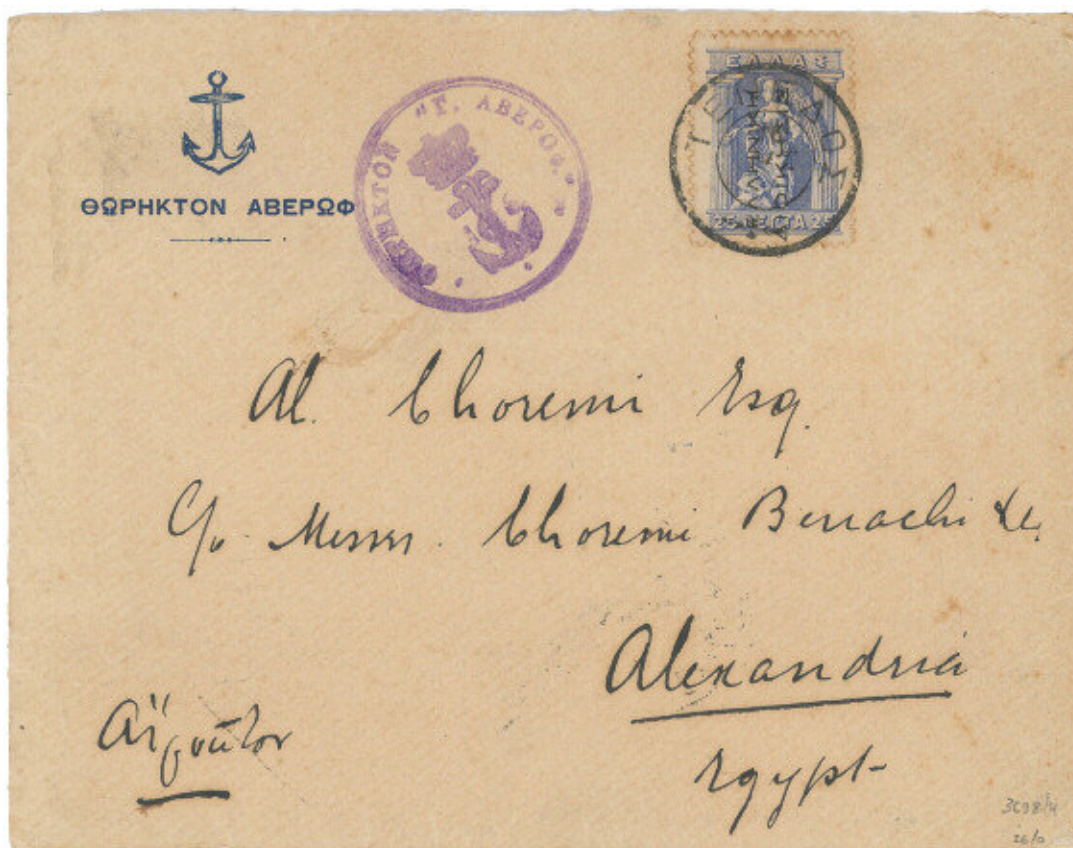 ΘΩΡΗΚΤΟΝ ΑΒΕΡΩΦ
ΘΩΡΗΚΤΟΝ "Γ. ΑΒΕΡΩΦ."
ΕΛΛΑΣ
ΕΛΛΗΝΙΚΗ
ΔΙΟΙΚΗΣΙΣ
25 ΛΕΠΤΑ 25
ΤΕΝΕΔΟΣ
Al. Choremi Esq.
C/o Messrs. Choremi Benachi & Co.
Alexandria
Egypt
Αἴγυπτον
26/0